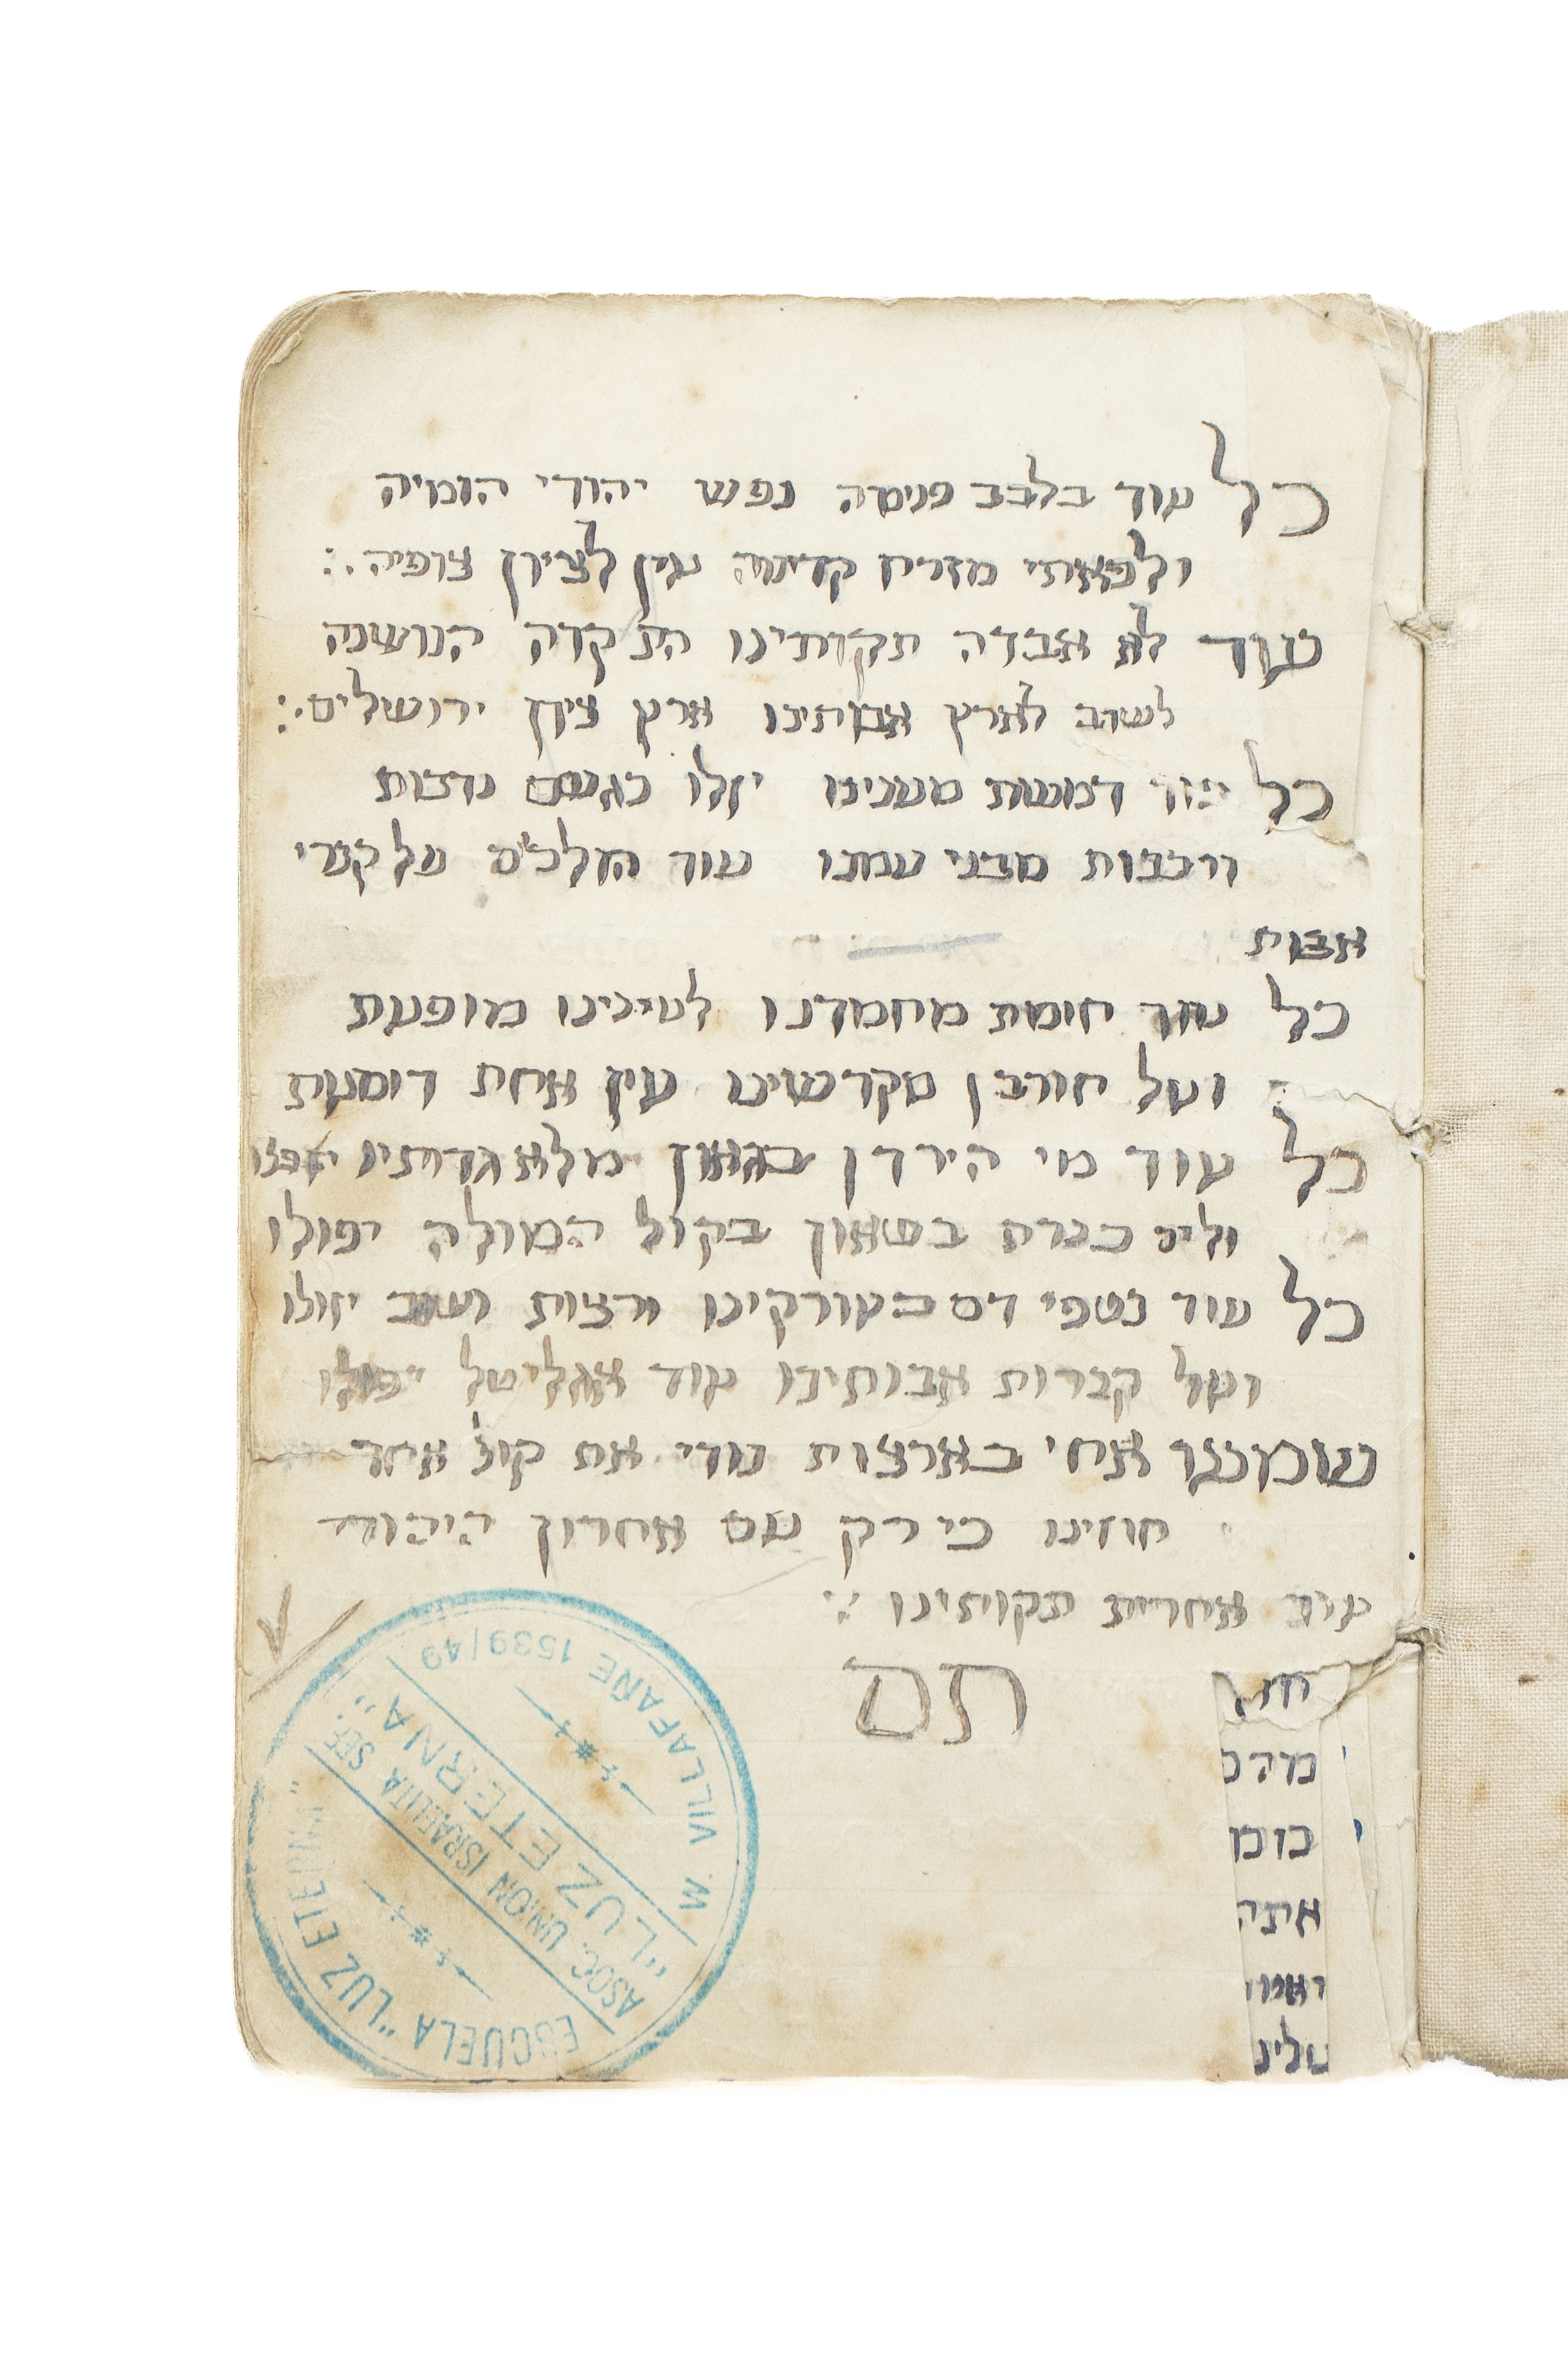 כל עוד בלבב פנימה נפש יהודי הומיה
ולפאתי מזרח קדימה עין לציון צופיה
עוד לא אבדה תקותינו התקוה הנושנה
לשוב לארץ אבותינו ארץ ציון ירושלים
כל עוד דמעות מענינו יזלו כגשם נדבות
ורבבות מבני עמנו עוד הולכים על קברי
אבות
כל עוד חומת מחמדנו לעינינו מופעת
ועל חורבן מקדשינו עין אחת דומעת
כל עוד מי הירדן בגאון מלא גדותיו
ולים כנרת בשאון בקול המולה יפולו
כל עוד נטפי דם בעורקינו ורצות ושוב יזולו
ועלי קברות אבותינו עוד אגלי טל יפולו
שמעו אחי בארצות נודי את קול אחד
חוזינו כי רק עם אחרון היהודי
עוד אחרית תקותינו
תם
חזו
מהם
כזמ
אתה
עלינ
ESCUELA "LUZ ETERNA"
ASOC. UNION ISRAELITA SEF.
"LUZ ETERNA"
W. VILLAFAÑE 1539/49